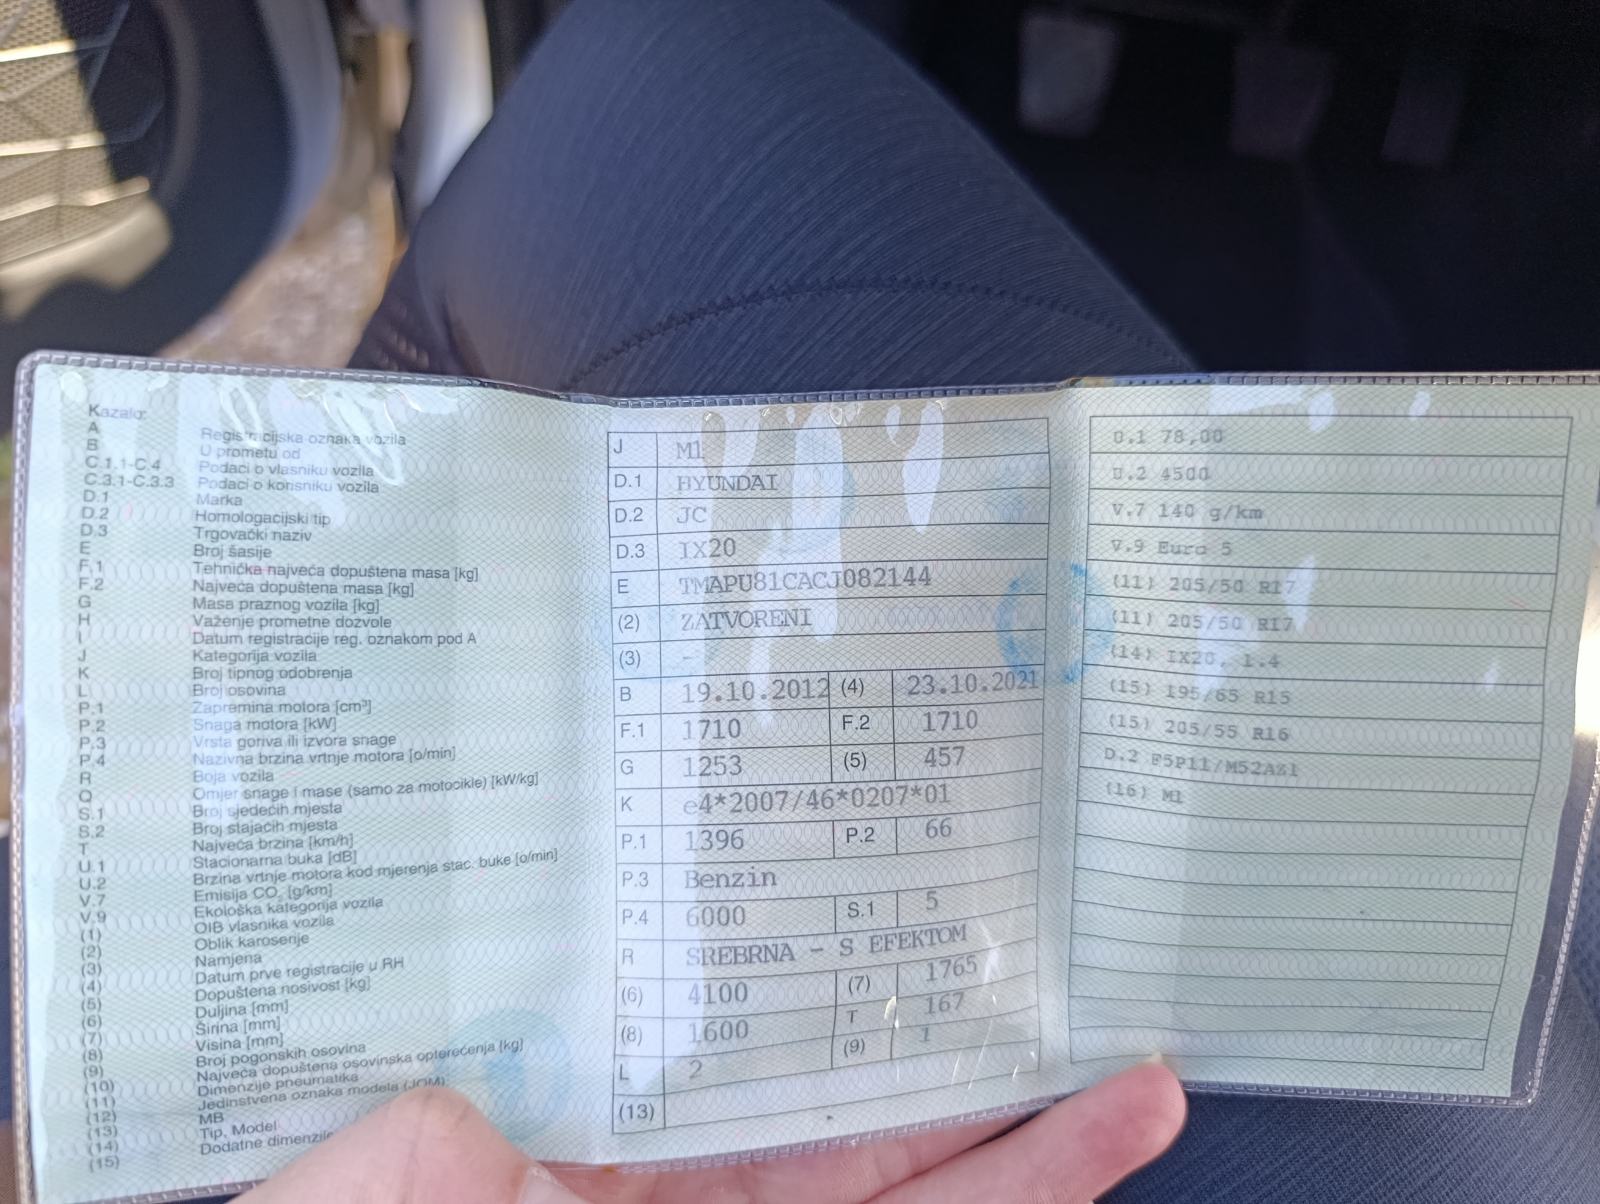 Kazalo:
A Registracijska oznaka vozila
B U prometu od
C.1.1-C.4 Podaci o vlasniku vozila
C.3.1-C.3.3 Podaci o korisniku vozila
D.1 Marka
D.2 Homologacijski tip
D.3 Trgovački naziv
E Broj šasije
F.1 Tehnička najveća dopuštena masa [kg]
F.2 Najveća dopuštena masa [kg]
G Masa praznog vozila [kg]
H Važenje prometne dozvole
I Datum registracije reg. oznakom pod A
J Kategorija vozila
K Broj tipnog odobrenja
L Broj osovina
P.1 Zapremina motora [cm³]
P.2 Snaga motora [kW]
P.3 Vrsta goriva ili izvora snage
P.4 Nazivna brzina vrtnje motora [o/min]
R Boja vozila
Q Omjer snage i mase (samo za motocikle) [kW/kg]
S.1 Broj sjedećih mjesta
S.2 Broj stajaćih mjesta
T Najveća brzina [km/h]
U.1 Stacionarna buka [dB]
U.2 Brzina vrtnje motora kod mjerenja stac. buke [o/min]
V.7 Emisija CO₂ [g/km]
V.9 Ekološka kategorija vozila
(1) OIB vlasnika vozila
(2) Oblik karoserije
(3) Namjena
(4) Datum prve registracije u RH
(5) Dopuštena nosivost [kg]
(6) Duljina [mm]
(7) Širina [mm]
(8) Visina [mm]
(9) Broj pogonskih osovina
(10) Najveća dopuštena osovinska opterećenja [kg]
(11) Dimenzije pneumatika
(12) Jedinstvena oznaka modela (JOM)
(13) MB
(14) Tip, Model
(15) Dodatne
J M1
D.1 HYUNDAI
D.2 JC
D.3 IX20
E TMAPU81CACJ082144
(2) ZATVORENI
(3) -
B 19.10.2012 (4) 23.10.2021
F.1 1710 F.2 1710
G 1253 (5) 457
K e4*2007/46*0207*01
P.1 1396 P.2 66
P.3 Benzin
P.4 6000 S.1 5
R SREBRNA - S EFEKTOM
(6) 4100 (7) 1765
(8) 1600 T 167
L 2 (9) 1
(13)
U.1 78,00
U.2 4500
V.7 140 g/km
V.9 Euro 5
(11) 205/50 R17
(11) 205/50 R17
(14) IX20, 1.4
(15) 195/65 R15
(15) 205/55 R16
D.2 F5P11/M52AZ1
(16) M1